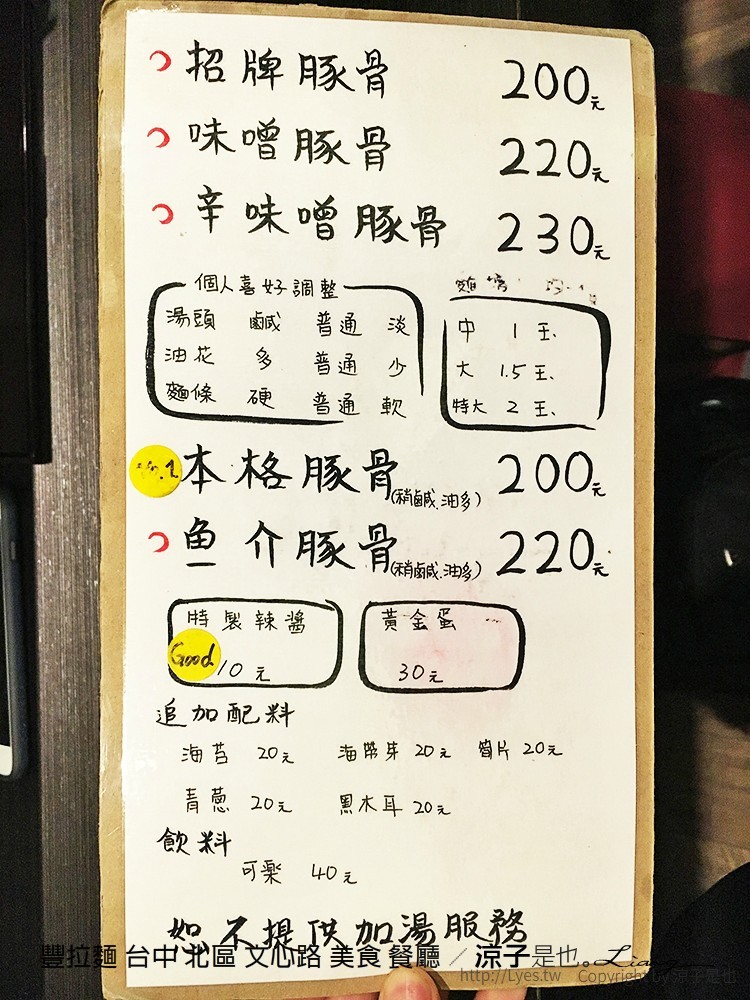 招牌豚骨 200元
味噌豚骨 220元
辛味噌豚骨 230元
個人喜好調整
湯頭 鹹 普通 淡
油花 多 普通 少
麵條 硬 普通 軟
中 1 玉
大 1.5 玉
特大 2 玉
No.1 本格豚骨(稍鹹.油多) 200元
魚介豚骨(稍鹹.油多) 220元
特製辣醬
Good 10元
黃金蛋
30元
追加配料
海苔 20元 海帶芽 20元 筍片 20元
青蔥 20元 黑木耳 20元
飲料
可樂 40元
恕不提供加湯服務
豐拉麵 台中 北區 文心路 美食 餐廳 / 涼子是也
http://Lyes.tw Copyright by 涼子是也